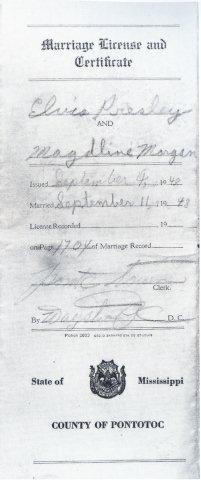 Marriage License and
Certificate
Elvis Presley
AND
Magdline Morgan
Issued September 9, 1948
Married September 11, 1948
License Recorded 19
on Page 170 of Marriage Record
Clerk.
By D. C.
State of Mississippi
COUNTY OF PONTOTOC